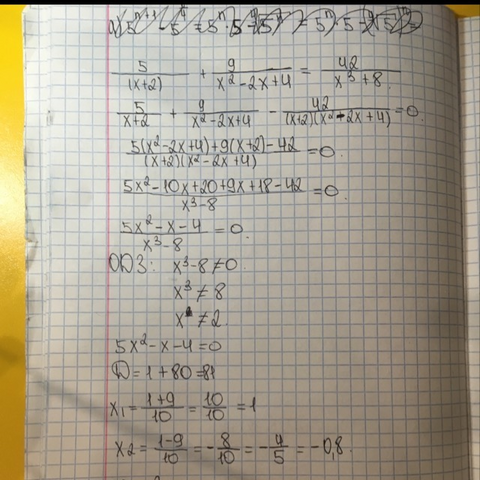 5/(x+2) + 9/(x²-2x+4) = 42/(x³+8)
5/(x+2) + 9/(x²-2x+4) - 42/((x+2)(x²-2x+4)) = 0
(5(x²-2x+4)+9(x+2)-42)/((x+2)(x²-2x+4)) = 0.
(5x²-10x+20+9x+18-42)/(x³-8) = 0.
(5x²-x-4)/(x³-8) = 0.
ОДЗ: x³-8≠0.
x³≠8
x≠2.
5x²-x-4=0
D=1+80=81
x₁=(1+9)/10=10/10=1
x2=(1-9)/10=-8/10=-4/5=-0,8.